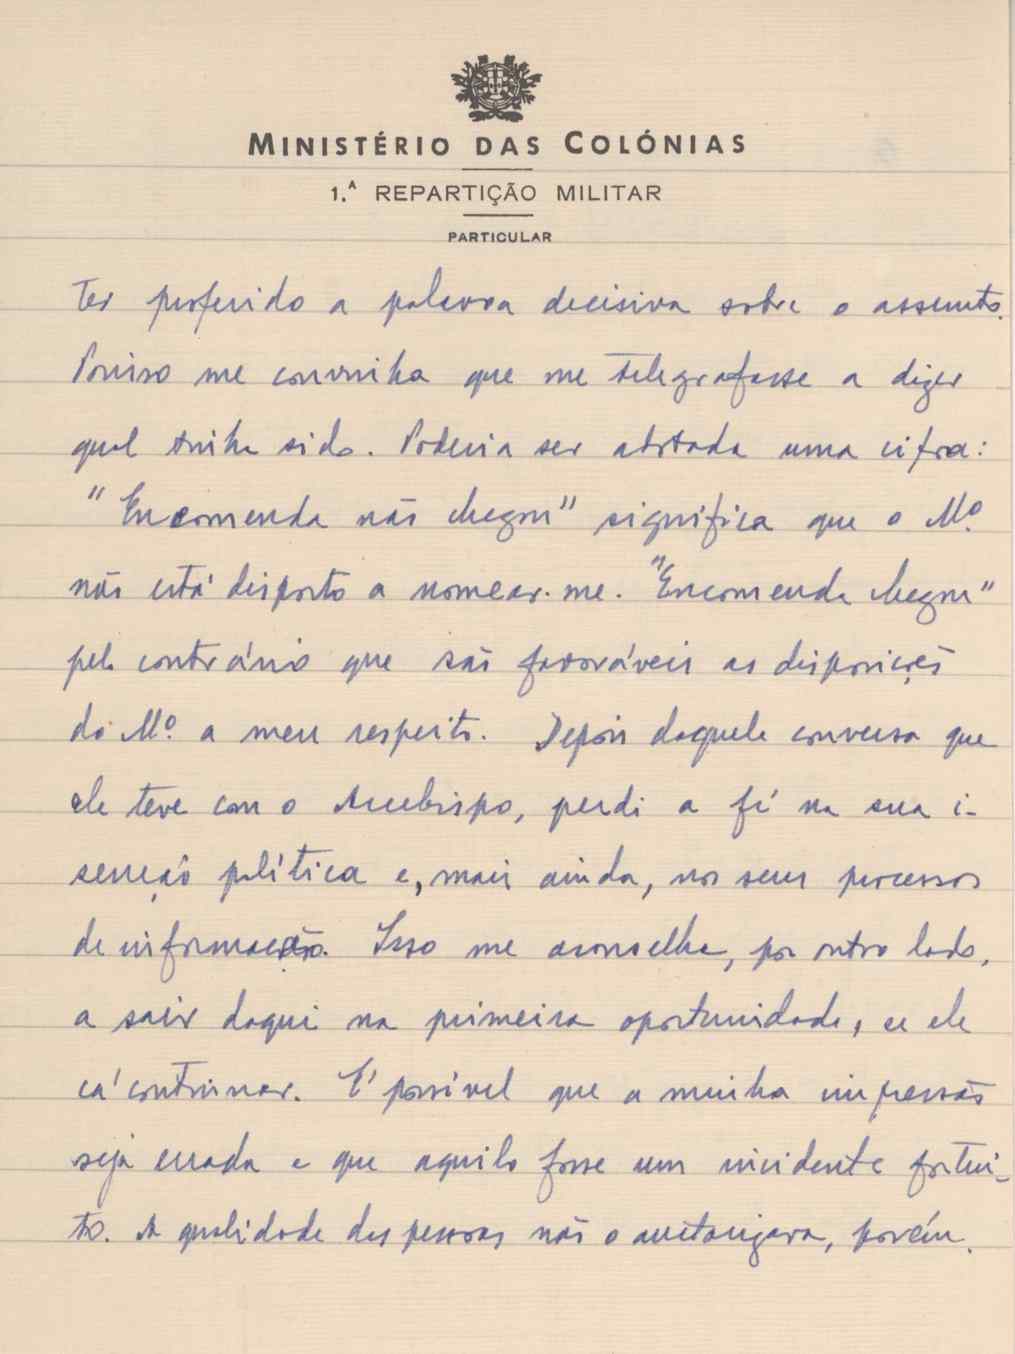 MINISTÉRIO DAS COLÓNIAS
1.ª REPARTIÇÃO MILITAR
PARTICULAR
ter proferido a palavra decisiva sobre o assunto.
Por isso me convinha que me telegrafasse a dizer
qual tinha sido. Poderia ser adotada uma cifra:
"Encomenda não chegou" significa que o Mº.
não está disposto a nomear-me. "Encomenda chegou"
pelo contrário que são favoráveis as disposições
do Mº. a meu respeito. Depois daquela conversa que
ele teve com o Arcebispo, perdi a fé na sua i-
senção política e, mais ainda, nos seus processos
de informação. Isso me aconselha, por outro lado,
a sair daqui na primeira oportunidade, se ele
cá continuar. É possível que a minha impressão
seja errada e que aquilo fosse um incidente fortui-
to. A qualidade das pessoas não o autorizava, porém.